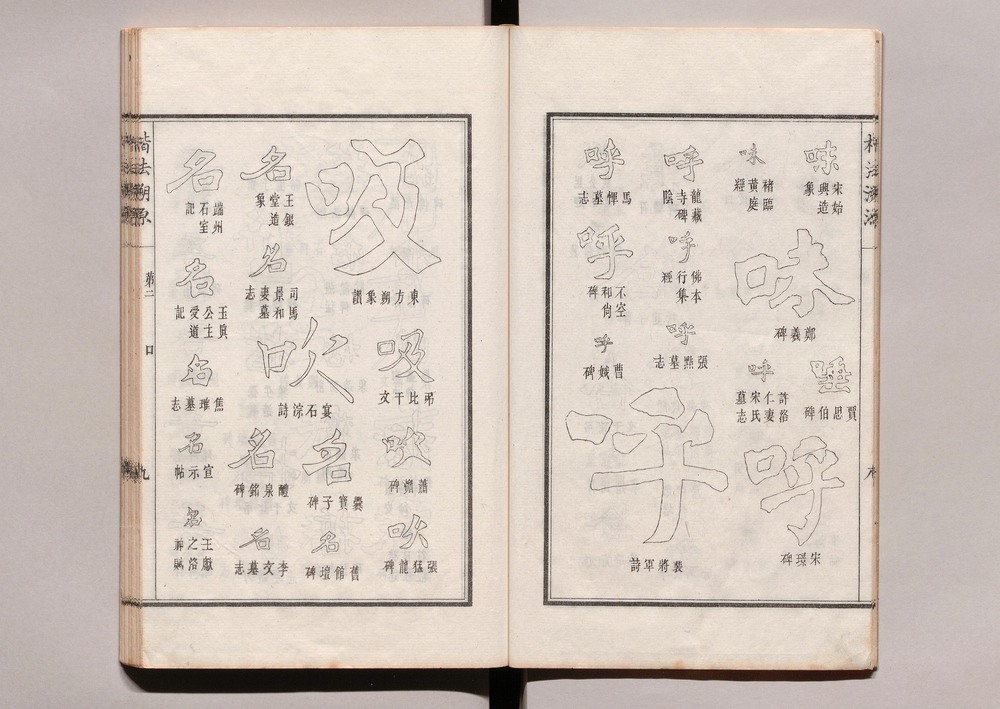 味
宋始興造象
味
褚臨黃庭經
味
鄭羲碑
唾
賈思伯碑
呼
許洛仁妻宋氏墓志
呼
宋璟碑
呼
龍藏寺碑陰
呼
佛本行集經
呼
張點墓志
呼
馬惲墓志
呼
不空和尚碑
呼
曹娥碑
呼
裴將軍詩
吸
東方朔象讚
吸
弔比干文
吹
蕭憺碑
吹
張猛龍碑
吹
宴石淙詩
名
爨寶子碑
名
舊館壇碑
名
王銀堂造象
名
司馬景和妻墓志
名
醴泉銘碑
名
李文墓志
名
端州石室記
名
玉眞公主受道記
名
焦璀墓志
名
宣示帖
名
王獻之洛神賦
楷法溯源
第二
口
九